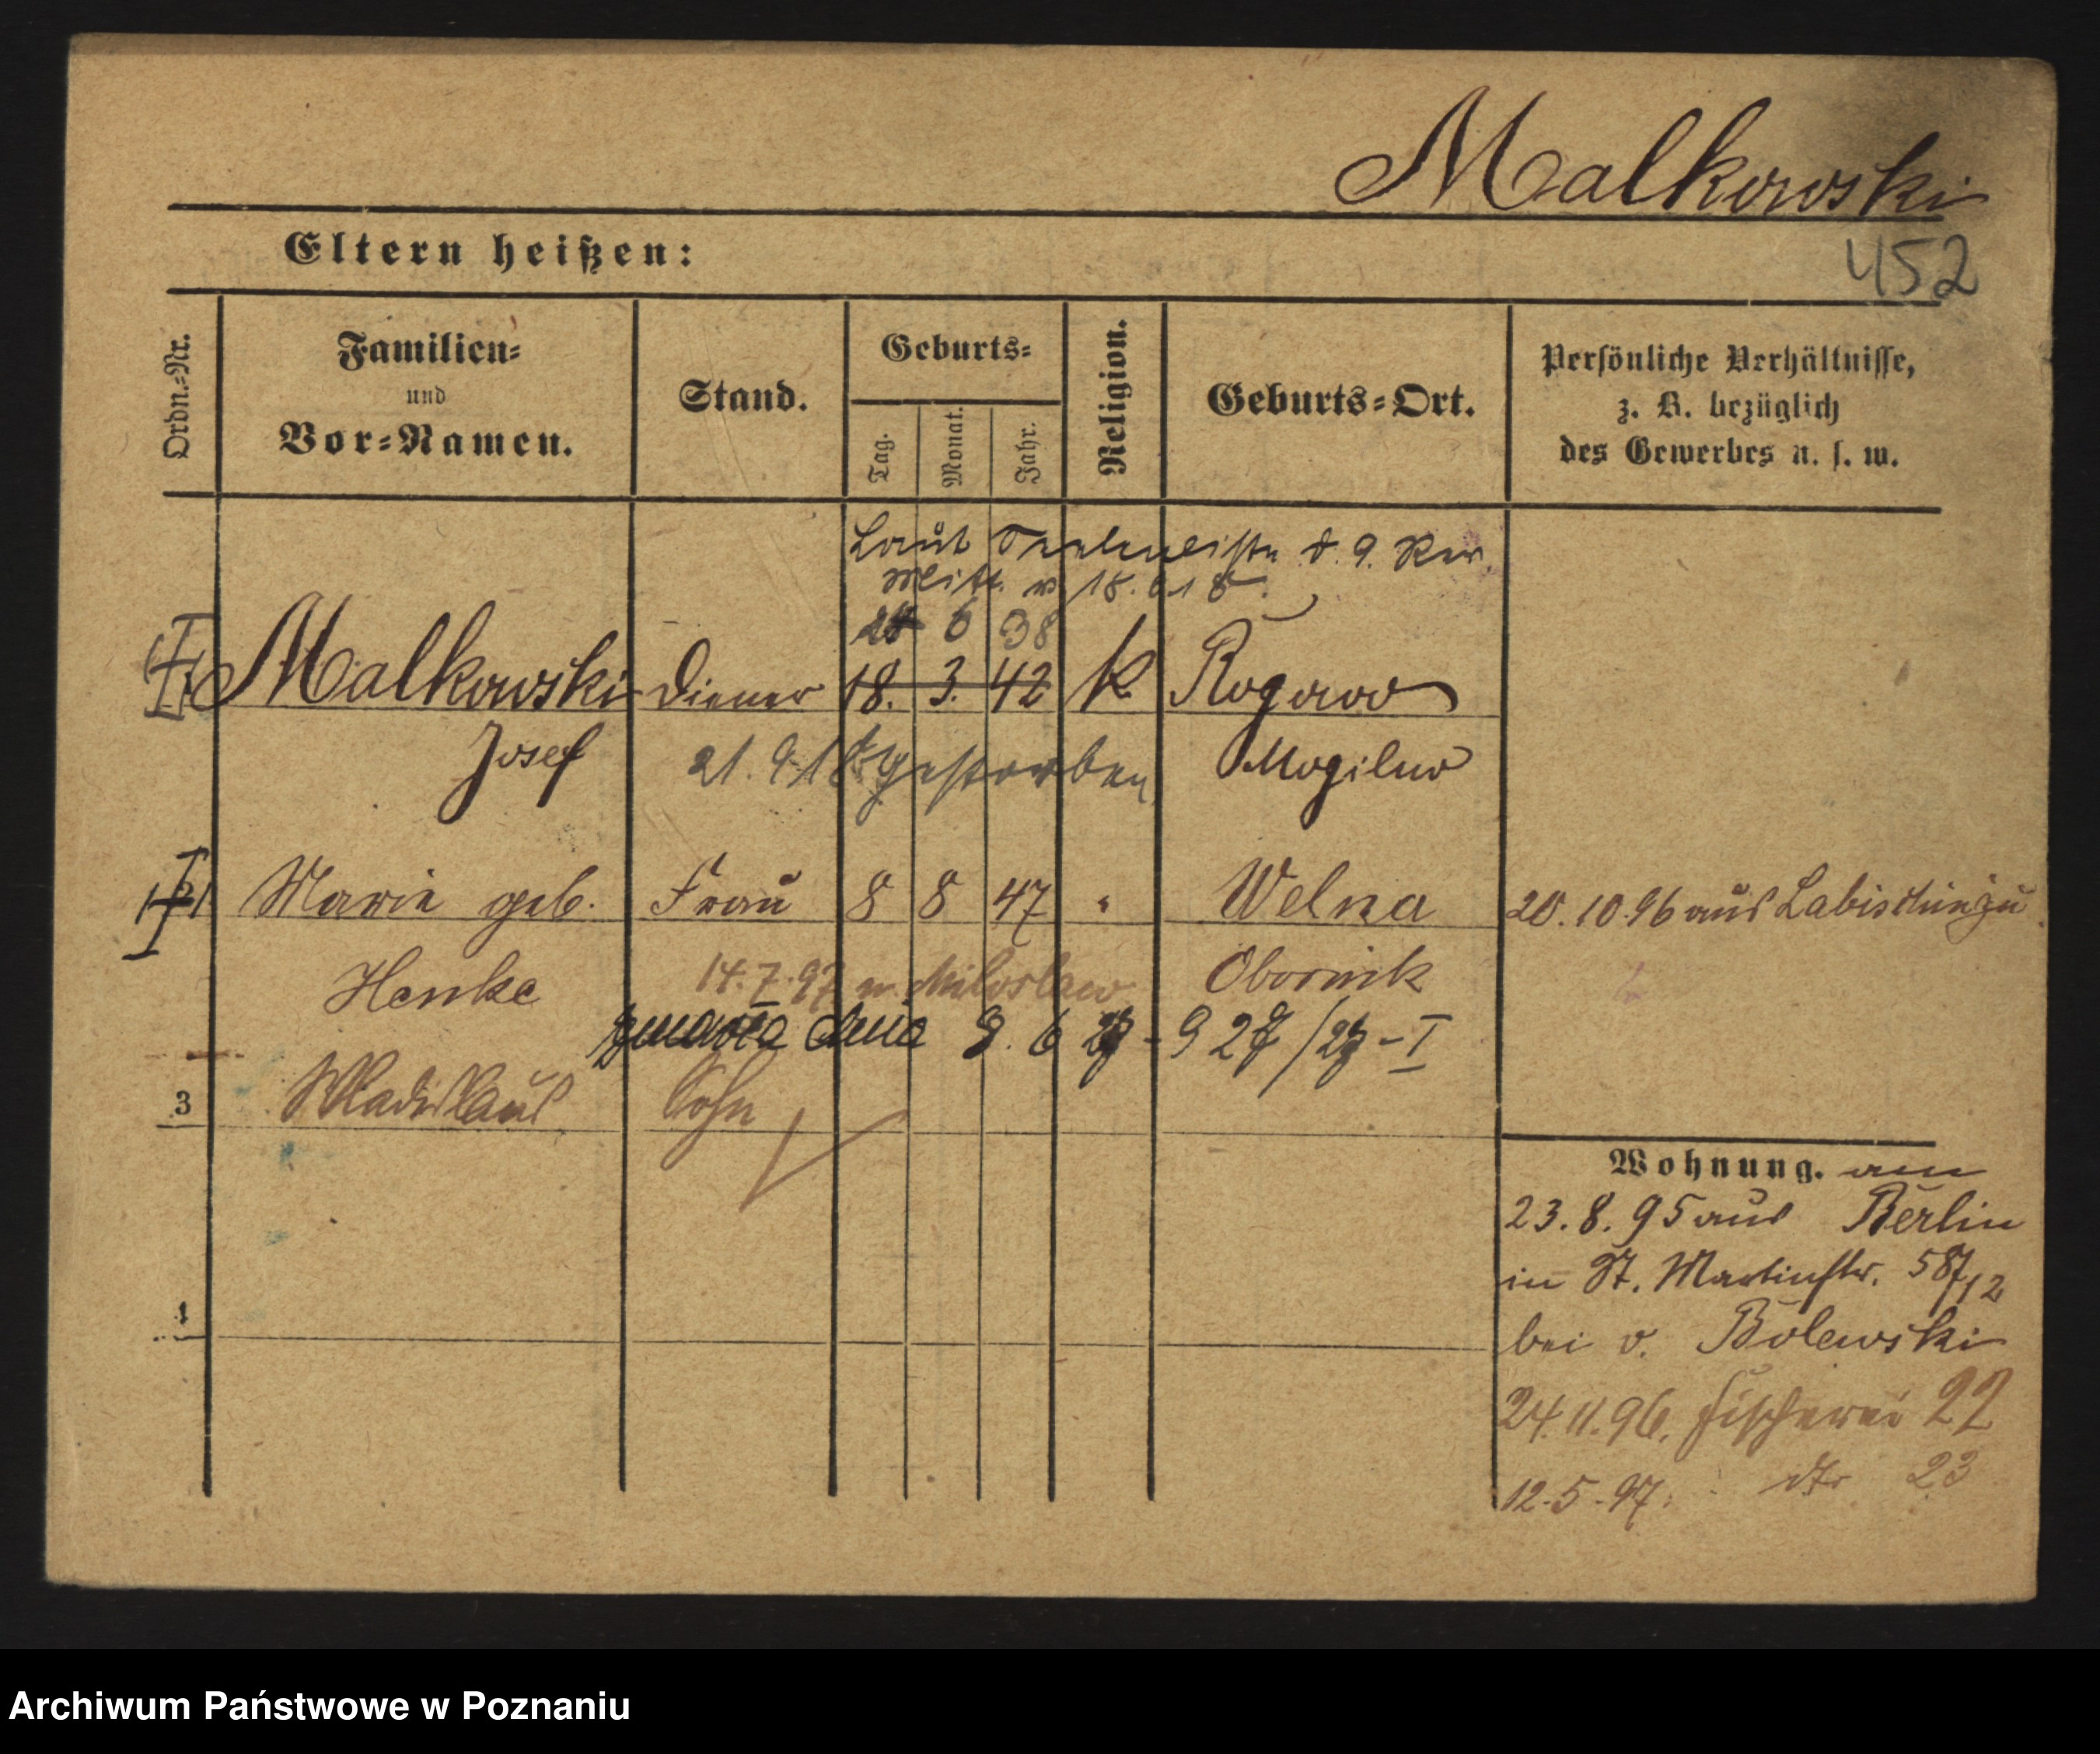 Malkowski
452
Eltern heißen:
Ordn.-Nr.
Familien-
und
Vor-Namen.
Stand.
Geburts-
Tag.
Monat.
Jahr.
Religion.
Geburts-Ort.
Persönliche Verhältnisse,
z. B. bezüglich
des Gewerbes u. s. w.
Laut
v. 18.
6 38
Malkowski Diener 18. 3. 42 K Rogowo
Josef gestorben Mogilno
Marie geb. Frau 8 8 47 " Welna 20.10.96 aus Labischin zu
Henke 14.7.97 n. Miloslaw Obornik
zmarła dnia 9. 6 27 - 927/27-I
3 Wladislaus Sohn
Wohnung. am
23.8.95 aus Berlin
in St. Martinstr. 58
bei v. Bolewski
24.11.96. Fischerei 22
12.5.97. dto 23
Archiwum Państwowe w Poznaniu